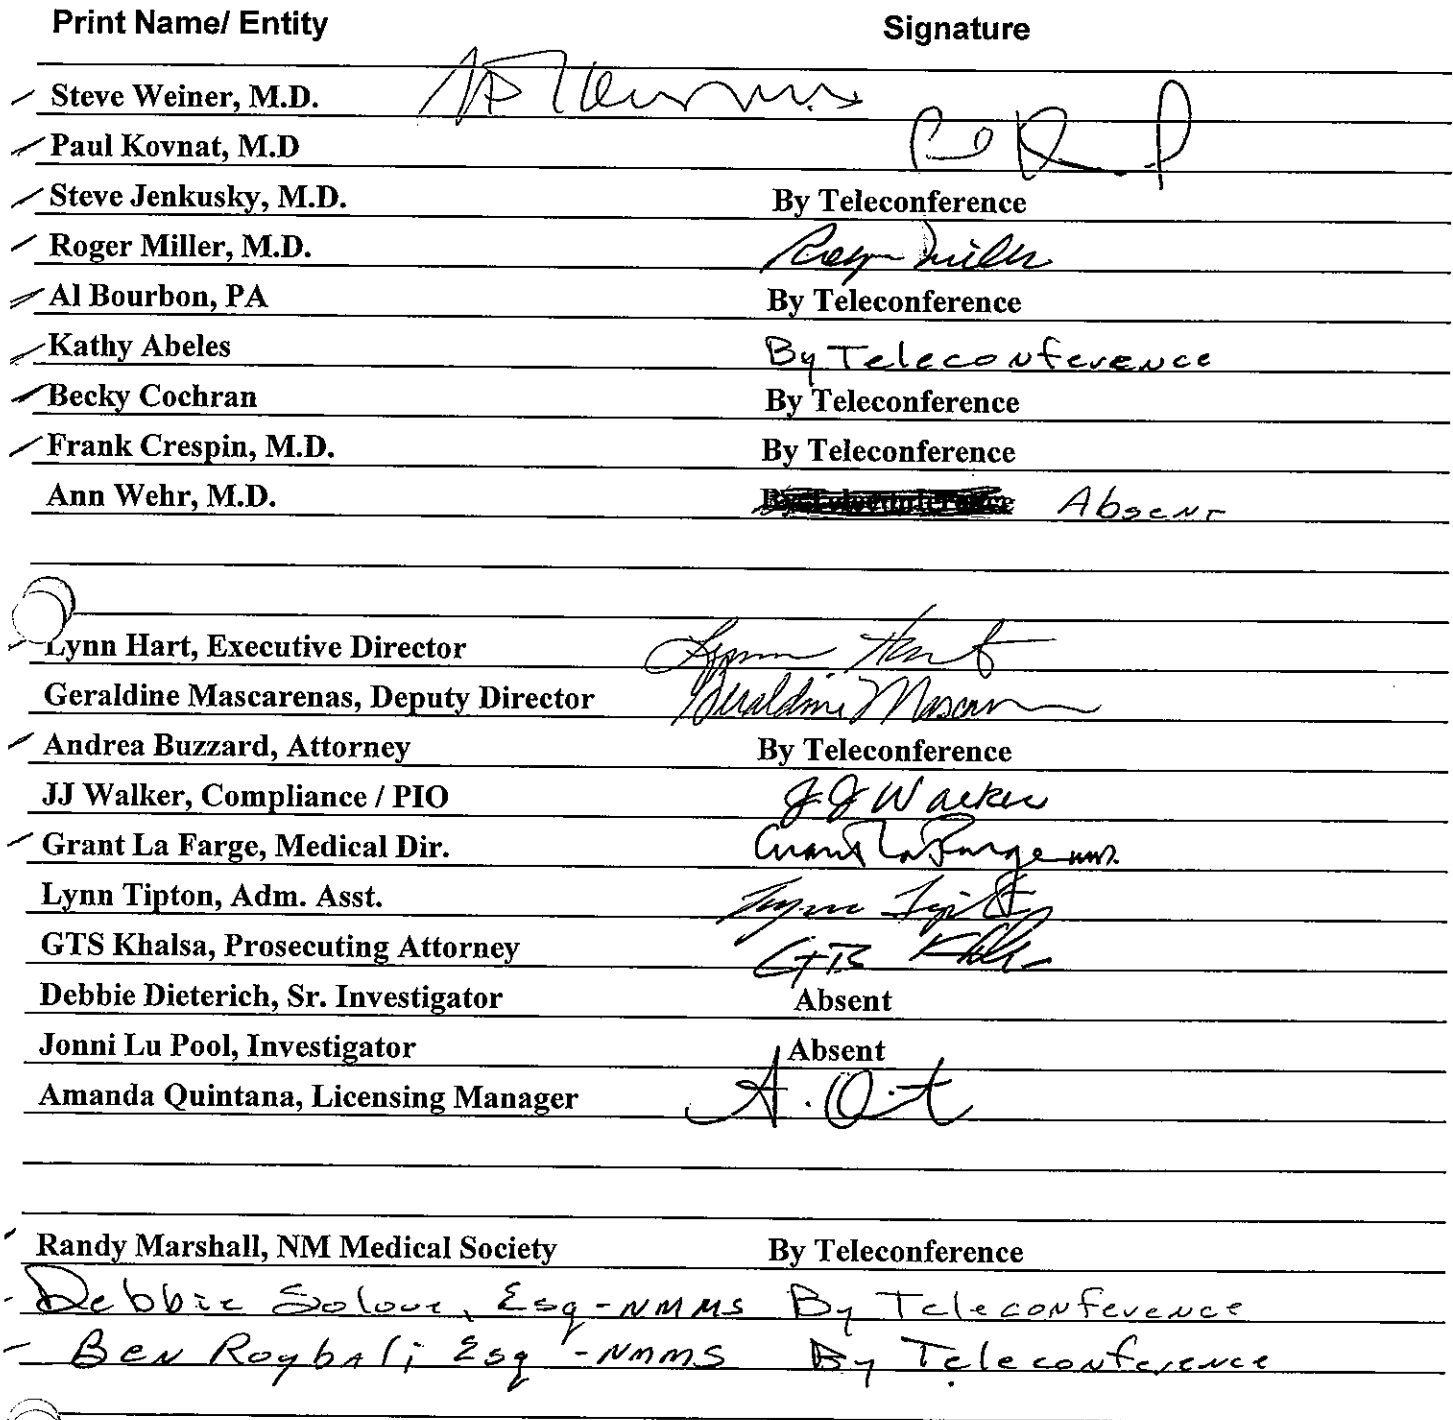 Print Name/ Entity Signature
Steve Weiner, M.D.
Paul Kovnat, M.D
Steve Jenkusky, M.D. By Teleconference
Roger Miller, M.D. Roger Miller
Al Bourbon, PA By Teleconference
Kathy Abeles By Teleconference
Becky Cochran By Teleconference
Frank Crespin, M.D. By Teleconference
Ann Wehr, M.D. By Teleconference Absent
Lynn Hart, Executive Director Lynn Hart
Geraldine Mascarenas, Deputy Director Geraldine Mascarenas
Andrea Buzzard, Attorney By Teleconference
JJ Walker, Compliance / PIO JJ Walker
Grant La Farge, Medical Dir. Grant La Farge MD.
Lynn Tipton, Adm. Asst. Lynn Tipton
GTS Khalsa, Prosecuting Attorney GTS Khalsa
Debbie Dieterich, Sr. Investigator Absent
Jonni Lu Pool, Investigator Absent
Amanda Quintana, Licensing Manager A. Q
Randy Marshall, NM Medical Society By Teleconference
Debbie Solove, Esq - NMMS By Teleconference
Ben Roybal; Esq - NMMS By Teleconference